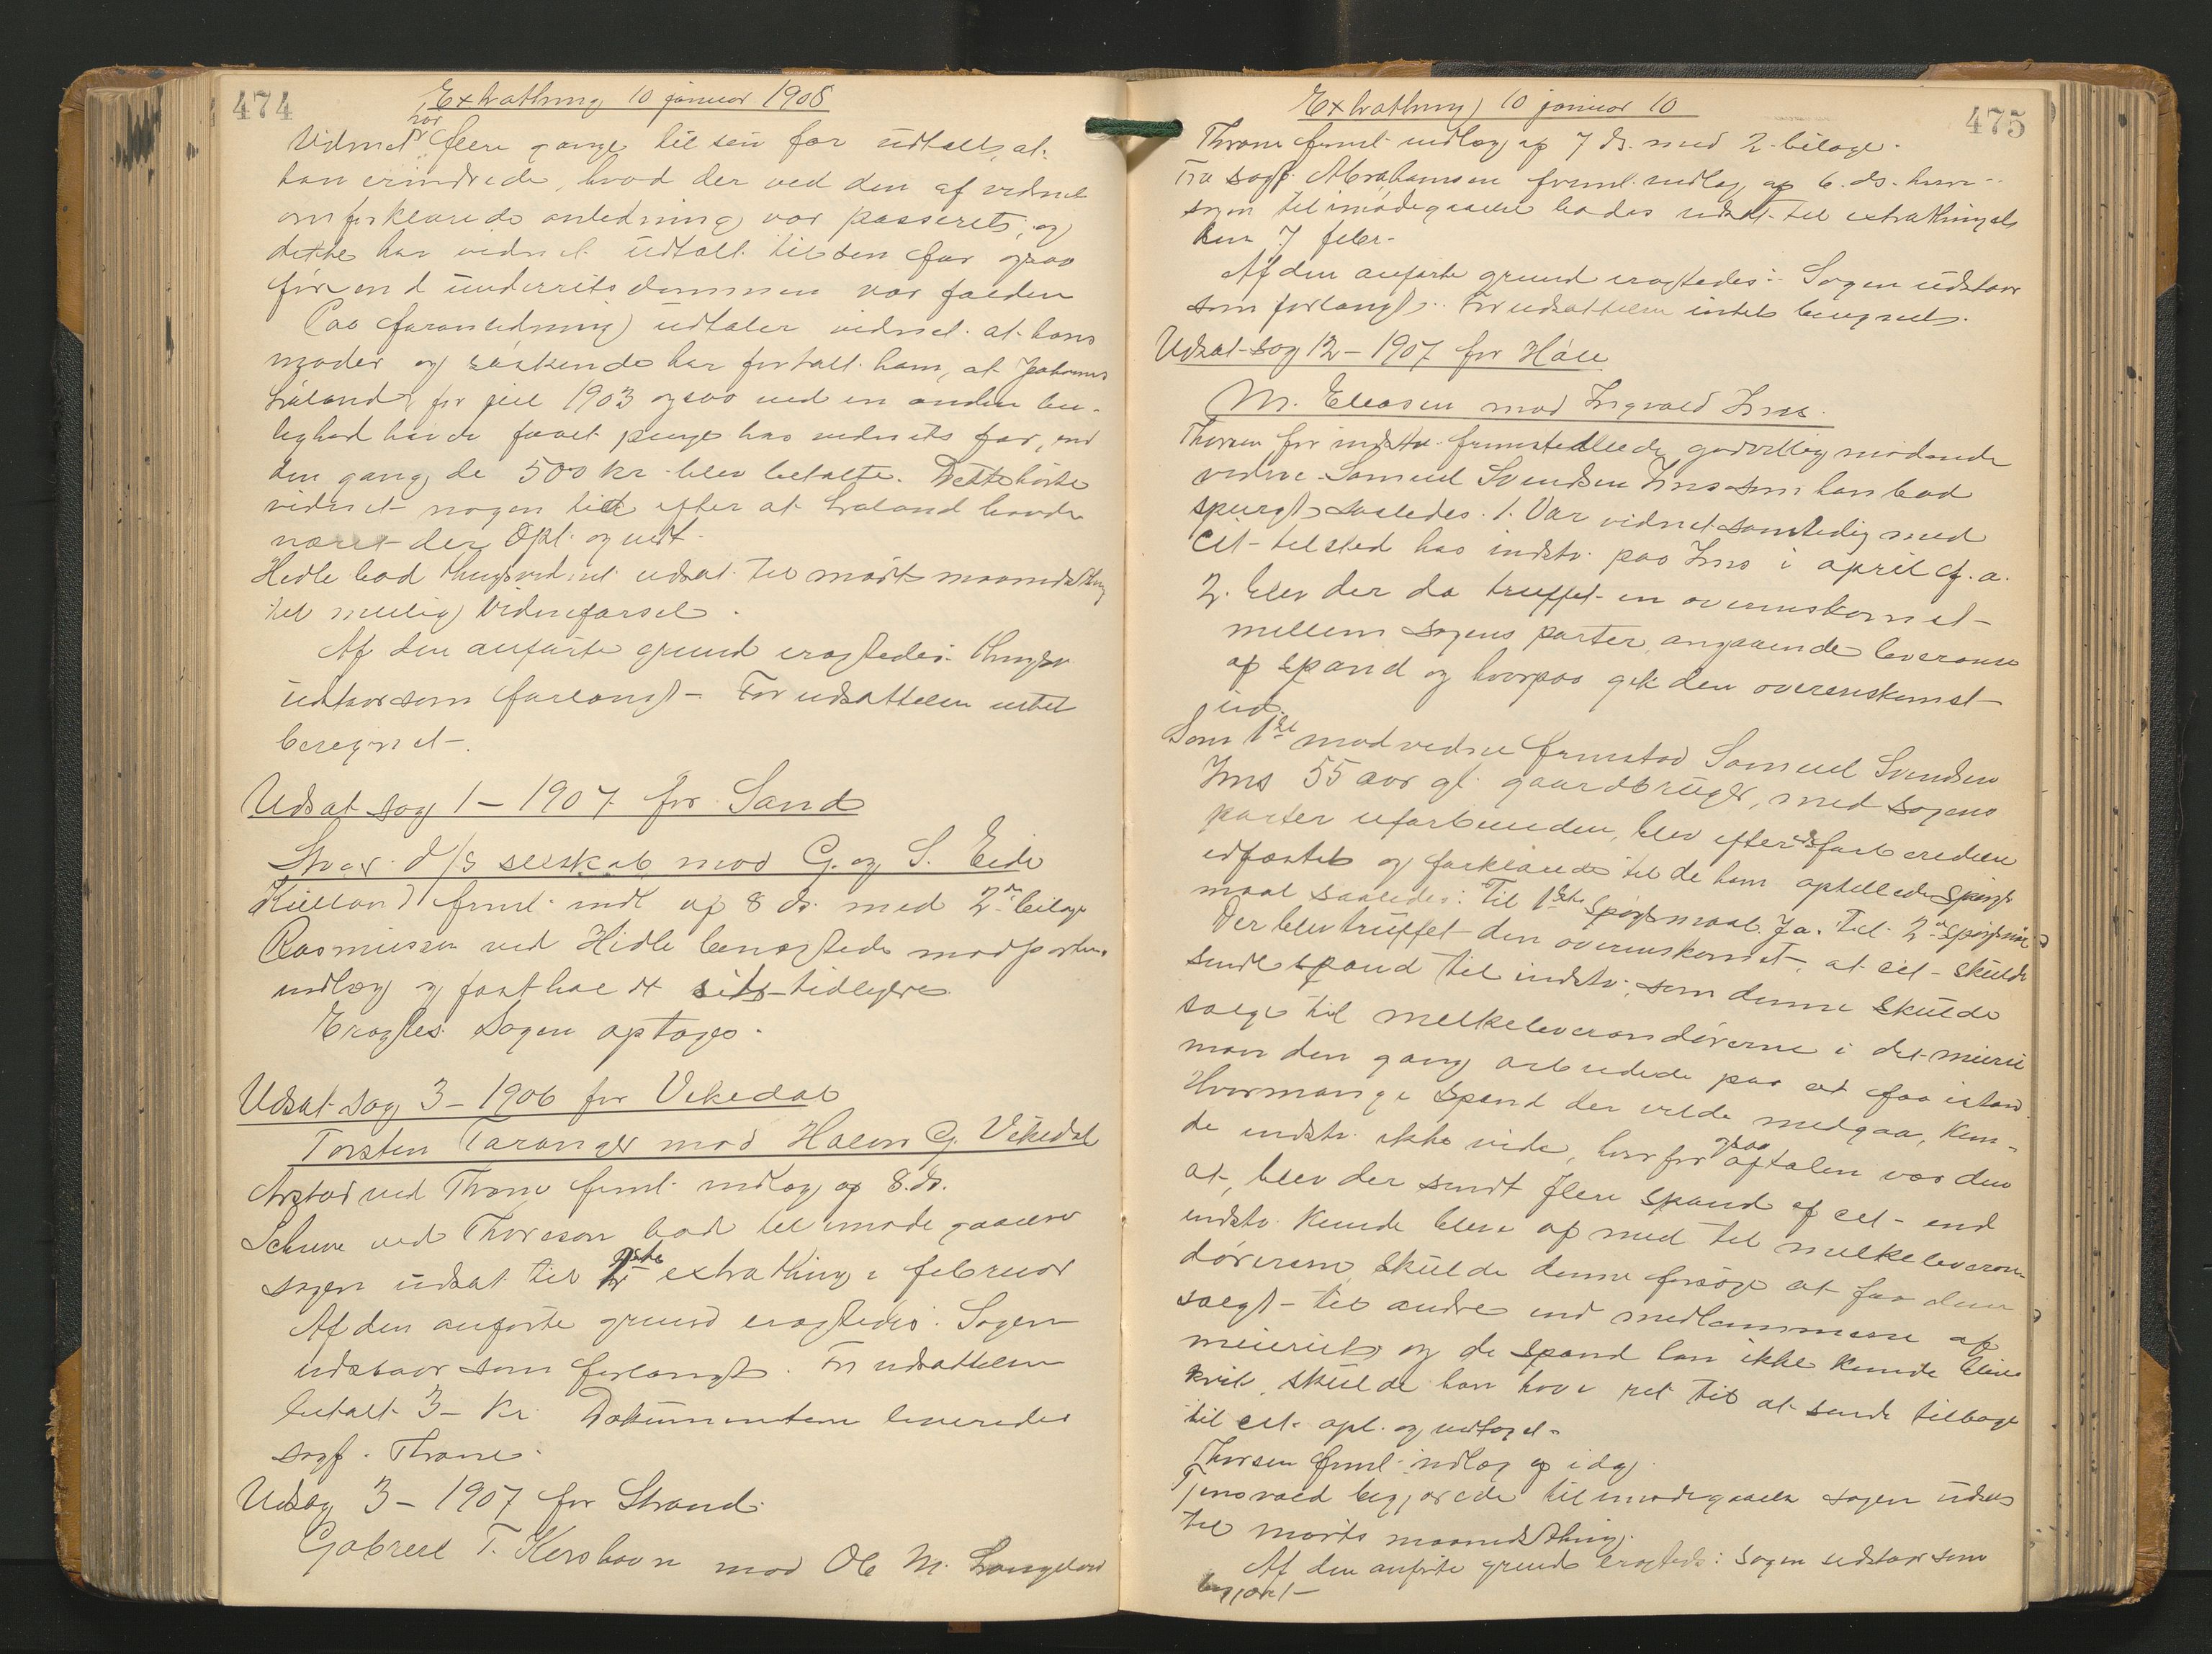 474
Extrathing 10 januar 1908
Vidnet har flere gange til sin far udtalt, at
han erindrede, hvad der ved den af vidnet
omforklarede anledning var passeret, og
dette har vidnet udtalt til sin far ogsaa
før end underretsdommen var falden
Paa foranledning udtaler vidnet at hans
moder og søskende har fortalt ham, at Johannes
Laland før juil 1903 ogsaa ved en anden lei-
lighed havde faaet penge hos vidnets far, end
den gang de 500 kr blev betalte. Dette hørte
vidnet nogen tid efter at Laland havde
været der Opl. og vedt.
Hidle bad thingsvidnet udsat til marts maanedsthing
til mulig vidneførsel.
Af den anførte grund eragtedes: Thingsv.
udstaar som forlangt - For udsættelsen intet
beregnet -
Udsat sag 1 - 1907 for Sand
Stvgr. d/s selskab mod G. og S. Eide
Kielland freml. indl af 8 ds. med 2 bilage
Rasmussen ved Hidle benægtede modpartens
indlæg og fastholdt sit tidligere
Eragtes Sagen optages.
Udsat sag 3 - 1906 for Vikedal
Torsten Taranger mod Halvor G. Vikedal
Arstad ved Thrane freml. indlæg af 8. ds.
Schive ved Thorsen bad til imødegaaelse
sagen udsat til 1ste extrathing i februar
Af den anførte grund eragtedes: Sagen
udstaar som forlangt. For udsættelsen
betalt 3 - kr. Dokumenterne leveredes
sagf. Thrane.
Uds sag 3 - 1907 for Strand.
Gabriel T. Kirshavn mod Ole M. Longeland
475
Extrathing 10 januar 10
Thrane freml. indlæg af 7 ds. med 2 bilage.
Fra sagf. Abrahamsen freml. indlæg af 6. ds. hvori
sagen til imødegaaelse bades udsat til extrathinget
den 7 febr.
Af den anførte grund eragtedes: Sagen udstaar
som forlangt. For udsættelsen intet beregnet.
Udsat sag 12 - 1907 for Håle
M. Eliasen mod Ingvald Ims.
Thorsen for indstv. fremstillede godvillig mødende
vidne Samuel Svendsen Ims som han bad
spurgt saaledes. 1. Var vidnet samtidig med
cit. tilsted hos indstv. paa Ims i april f. a.
2. blev der da truffet en overenskomst
mellem sagens parter angaaende leverance
af spand og hvorpaa gik den overenskomst
ud.
Som 1ste modvidne fremstod Samuel Svendsen
Ims 55 aar gl. gaardbruger, med sagens
parter uforbunden, blev efter edsforberedelse
edfæstet og forklarede til de ham opstillede spørgs-
maal saaledes: Til 1ste Spørgsmaal. Ja. Til 2det spørgsmaal
Der blev truffet den overenskomst, at cit. skulde
sende spand til indstv. som denne skulde
sælge til melkeleverandørerne i det meieri
man den gang arbeidede paa at faa istand.
Hvormange spand der vilde medgaa, kun-
de indstv. ikke vide, hvorfor ogsaa aftalen var den
at, blev der sendt flere spand af cit. end
indstv. kunde blive af med til melkeleveran-
dørerne, skulde denne forsøge at faa dem
solgt til andre end medlemmerne af
meieriet, og de spand han ikke kunde blive
kvit, skulde han have ret til at sende tilbage
til cit. opl. og vedtaget.
Thorsen freml. indlæg af idag.
Tjensvold begjærede til imødegaaelse sagen udsat
til marts maanedsthing.
Af den anførte grund eragtedes: Sagen udstaar som
begjært -